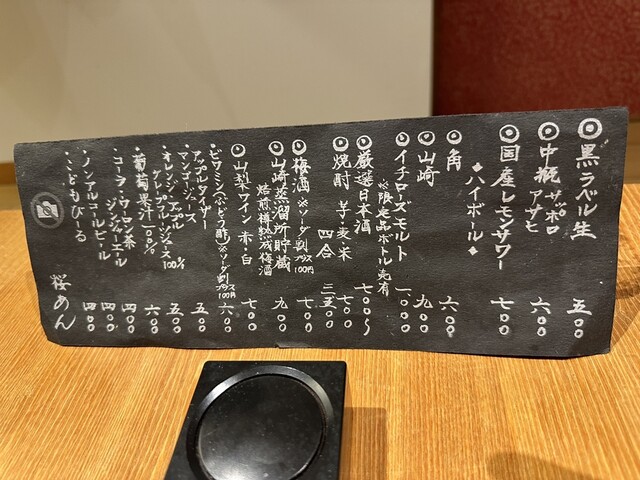 ◎黒ラベル生 五〇〇
◎中瓶 サッポロ アサヒ 六〇〇
◎国産レモンサワー 七〇〇
◆ハイボール◆
◎角 六〇〇
◎山崎 九〇〇
◎イチローズモルト 一〇〇〇
※限定品ボトル売有
◎厳選日本酒 七〇〇〜
◎焼酎 芋・麦・米 七〇〇
四合 三五〇〇
◎梅酒 ※ソーダ割プラス100円 七〇〇
◎山崎蒸溜所貯蔵 焙煎樽熟成梅酒 九〇〇
◎山梨ワイン 赤・白 七〇〇
・ビワミン(ぶどう酢) ※ソーダ割プラス100円 六〇〇
・アップルタイザー 五〇〇
・マンゴージュース
・オレンジ・アップル グレープフルーツジュース100% 五〇〇
・葡萄果汁100% 六〇〇
・コーラ・ウーロン茶 ジンジャーエール 四〇〇
・ノンアルコールビール 四〇〇
・こどもびーる 四〇〇
桜あん